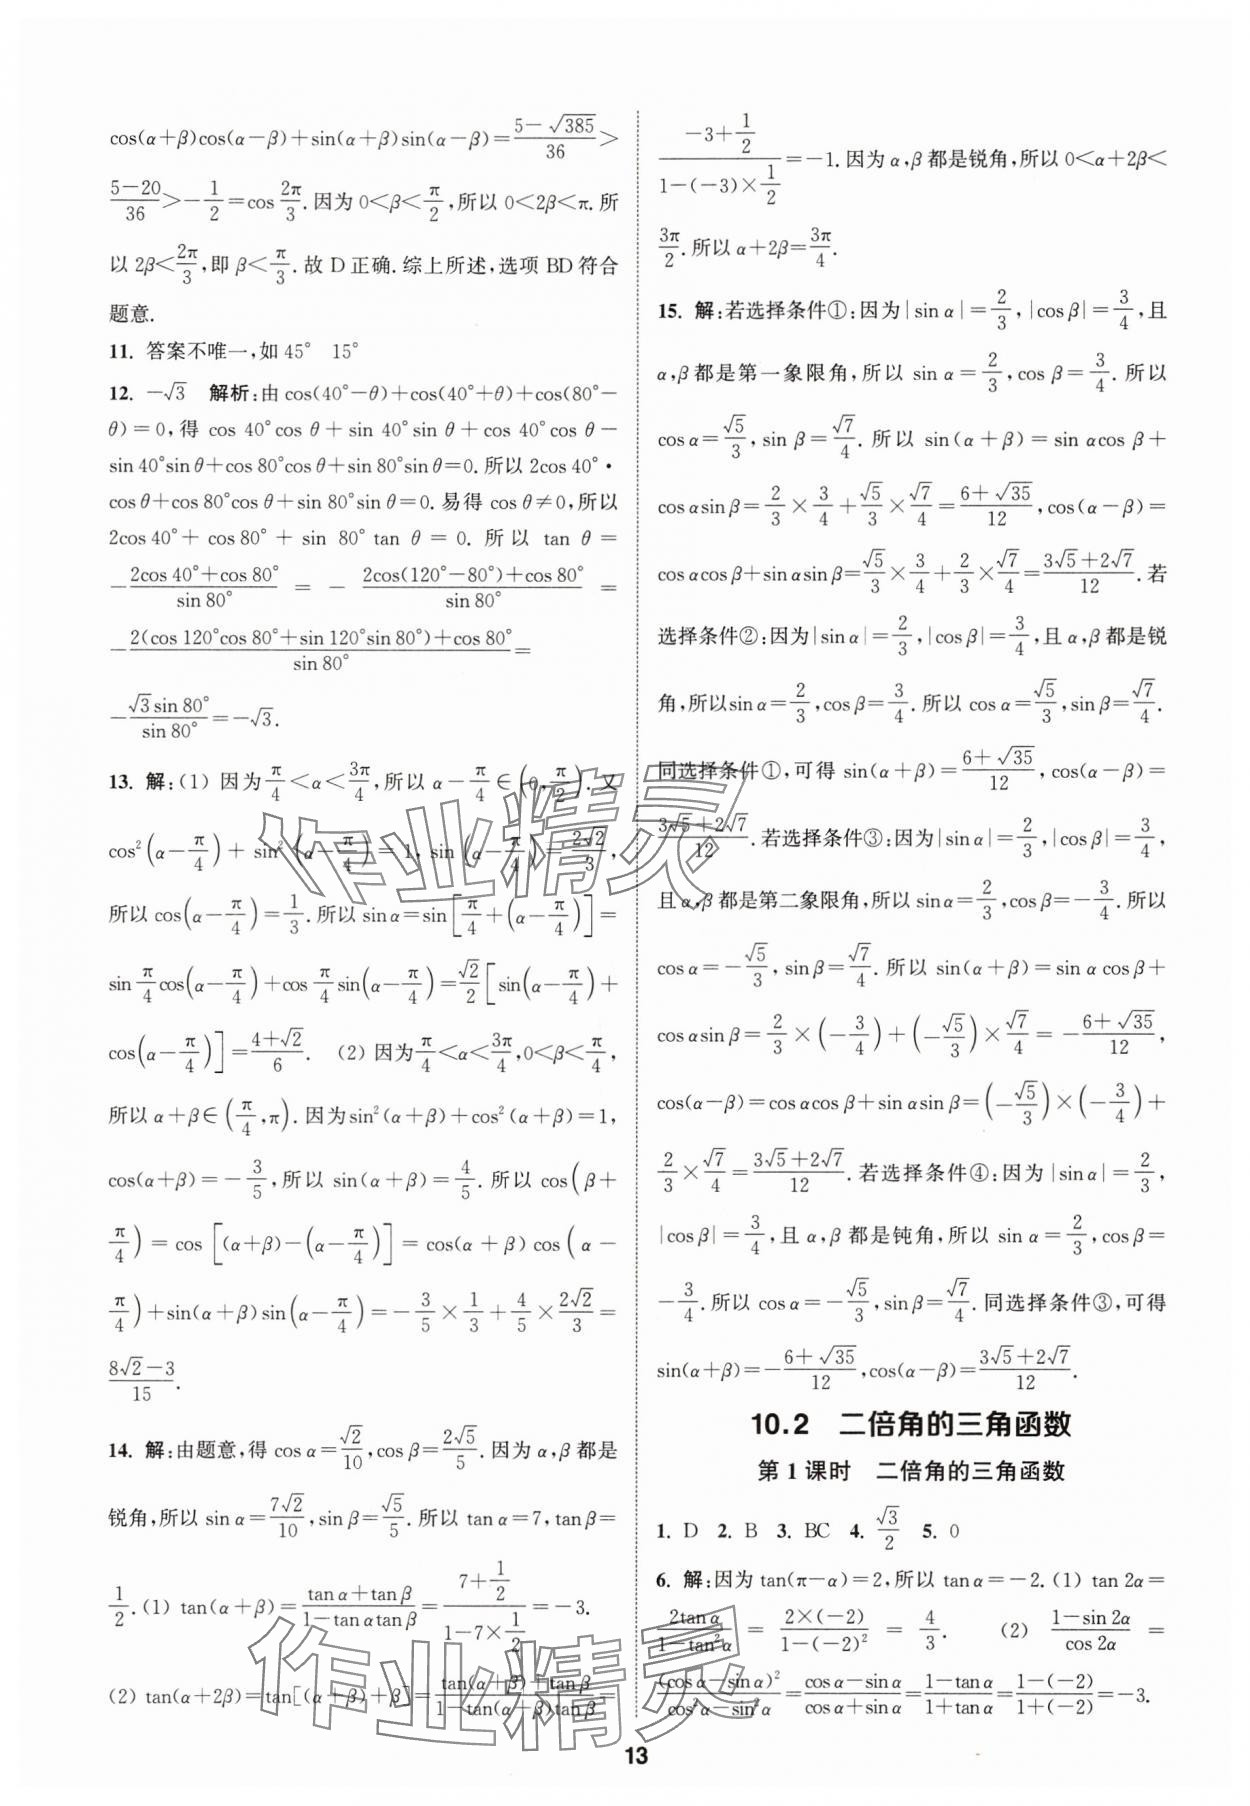 cos(α+β)cos(α−β)+sin(α+β)sin(α−β)=(5−√385)/36>
(5−20)/36>−1/2=cos 2π/3.因为0<β<π/2,所以0<2β<π.所
以2β<2π/3,即β<π/3.故D正确.综上所述,选项BD符合
题意.
11. 答案不唯一,如45° 15°
12. −√3 解析:由cos(40°−θ)+cos(40°+θ)+cos(80°−
θ)=0,得 cos 40°cos θ+sin 40°sin θ+cos 40°cos θ−
sin 40°sin θ+cos 80°cos θ+sin 80°sin θ=0.所以2cos 40°·
cos θ+cos 80°cos θ+sin 80°sin θ=0.易得cos θ≠0,所以
2cos 40°+cos 80°+sin 80°tan θ=0.所以 tan θ=
−(2cos 40°+cos 80°)/sin 80° = −(2cos(120°−80°)+cos 80°)/sin 80° =
−(2(cos 120°cos 80°+sin 120°sin 80°)+cos 80°)/sin 80°=
−√3 sin 80°/sin 80°=−√3.
13. 解:(1) 因为π/4<α<3π/4,所以α−π/4∈(0,π/2).又
cos²(α−π/4)+sin²(α−π/4)=1,sin(α−π/4)=2√2/3,
所以cos(α−π/4)=1/3.所以sin α=sin[π/4+(α−π/4)]=
sin π/4 cos(α−π/4)+cos π/4 sin(α−π/4)=√2/2[sin(α−π/4)+
cos(α−π/4)]=(4+√2)/6. (2) 因为π/4<α<3π/4,0<β<π/4,
所以α+β∈(π/4,π).因为sin²(α+β)+cos²(α+β)=1,
cos(α+β)=−3/5,所以 sin(α+β)=4/5.所以 cos(β+
π/4)=cos[(α+β)−(α−π/4)]=cos(α+β)cos(α−
π/4)+sin(α+β)sin(α−π/4)=−3/5×1/3+4/5×2√2/3=
(8√2−3)/15.
14. 解:由题意,得 cos α=√2/10,cos β=2√5/5.因为α,β都是
锐角,所以 sin α=7√2/10,sin β=√5/5.所以 tan α=7,tan β=
1/2.(1) tan(α+β)=(tan α+tan β)/(1−tan αtan β)=(7+1/2)/(1−7×1/2)=−3.
(2) tan(α+2β)=tan[(α+β)+β]=(tan(α+β)+tan β)/(1−tan(α+β)tan β)=
(−3+1/2)/(1−(−3)×1/2)=−1.因为α,β都是锐角,所以0<α+2β<
3π/2.所以α+2β=3π/4.
15. 解:若选择条件①:因为|sin α|=2/3,|cos β|=3/4,且
α,β都是第一象限角,所以 sin α=2/3,cos β=3/4.所以
cos α=√5/3,sin β=√7/4.所以 sin(α+β)=sin αcos β+
cos αsin β=2/3×3/4+√5/3×√7/4=(6+√35)/12,cos(α−β)=
cos αcos β+sin αsin β=√5/3×3/4+2/3×√7/4=(3√5+2√7)/12.若
选择条件②:因为|sin α|=2/3,|cos β|=3/4,且α,β都是锐
角,所以sin α=2/3,cos β=3/4.所以 cos α=√5/3,sin β=√7/4.
同选择条件①,可得 sin(α+β)=(6+√35)/12,cos(α−β)=
(3√5+2√7)/12.若选择条件③:因为|sin α|=2/3,|cos β|=3/4,
且α,β都是第二象限角,所以 sin α=2/3,cos β=−3/4.所以
cos α=−√5/3,sin β=√7/4.所以 sin(α+β)=sin αcos β+
cos αsin β=2/3×(−3/4)+(−√5/3)×√7/4=−(6+√35)/12,
cos(α−β)=cos αcos β+sin αsin β=(−√5/3)×(−3/4)+
2/3×√7/4=(3√5+2√7)/12.若选择条件④:因为|sin α|=2/3,
|cos β|=3/4,且α,β都是钝角,所以 sin α=2/3,cos β=
−3/4.所以 cos α=−√5/3,sin β=√7/4.同选择条件③,可得
sin(α+β)=−(6+√35)/12,cos(α−β)=(3√5+2√7)/12.
10.2 二倍角的三角函数
第1课时 二倍角的三角函数
1. D 2. B 3. BC 4. √3/2 5. 0
6. 解:因为tan(π−α)=2,所以 tan α=−2.(1) tan 2α=
2tan α/(1−tan²α)=2×(−2)/(1−(−2)²)=4/3. (2) (1−sin 2α)/cos 2α=
(cos α−sin α)²/(cos²α−sin²α)=(cos α−sin α)/(cos α+sin α)=(1−tan α)/(1+tan α)=(1−(−2))/(1+(−2))=−3.
作业精灵
作业精灵
13